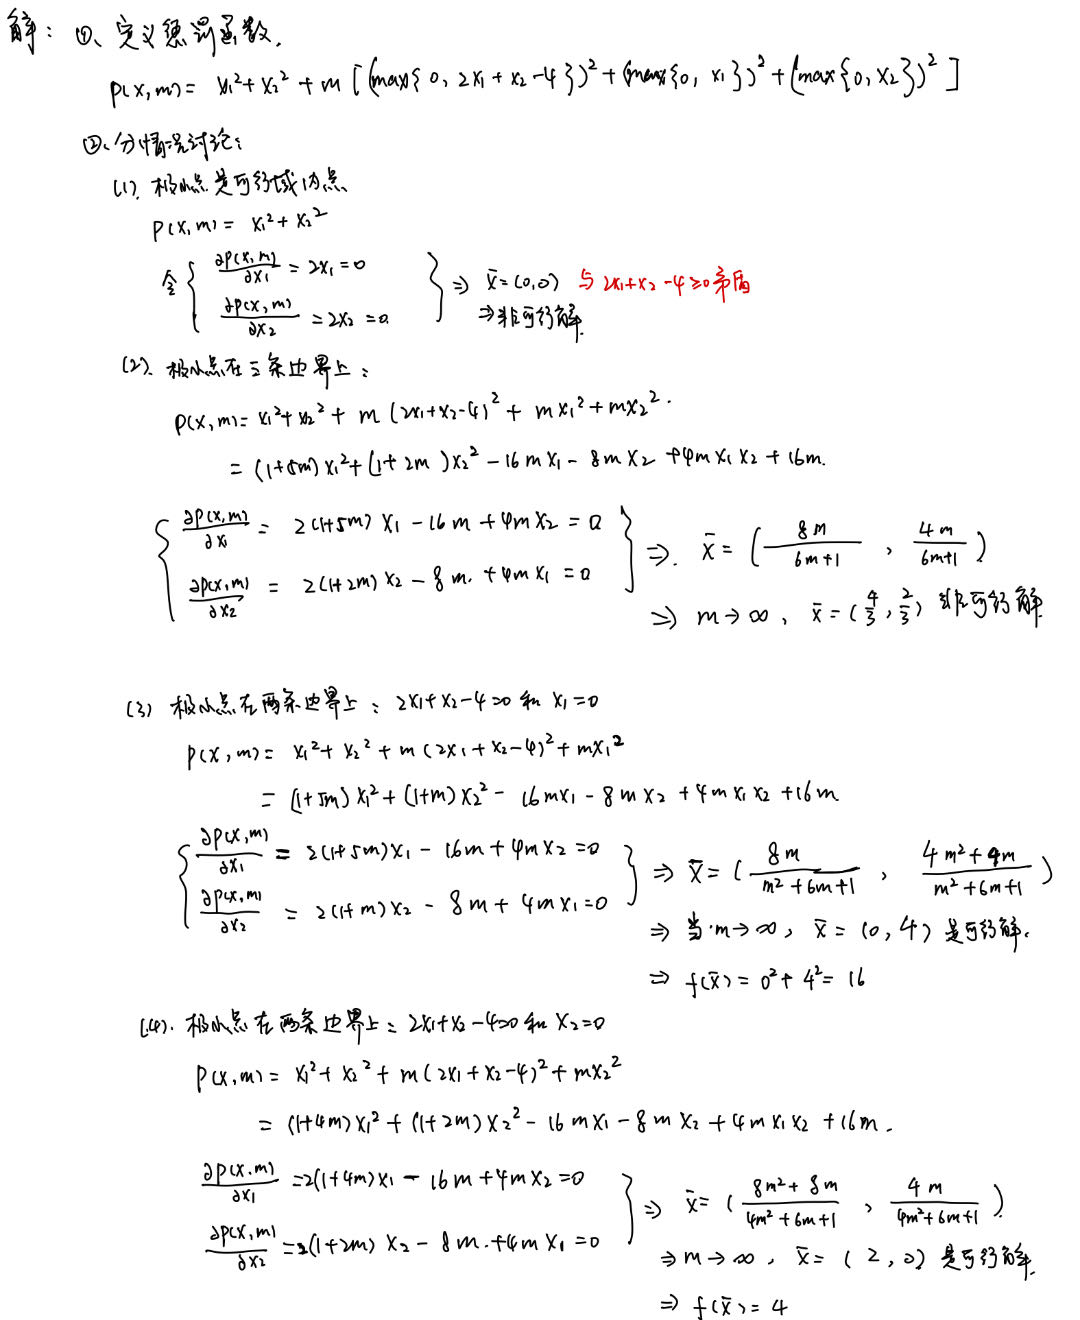 解：①、定义惩罚函数.
P(x,m)= x₁²+x₂² + m [(max{0, 2x₁+x₂-4})²+(max{0, x₁})²+(max{0,x₂})²]
②、分情况讨论:
(1). 极小点是可行域内点
P(x,m)= x₁²+x₂²
令 { ∂P(x,m)/∂x₁ = 2x₁=0
∂P(x,m)/∂x₂ = 2x₂=0. } ⇒ x̄=(0,0) 与2x₁+x₂-4≥0矛盾
⇒非可行解.
(2). 极小点在三条边界上：
P(x,m)= x₁²+x₂² + m(2x₁+x₂-4)² + mx₁²+mx₂².
= (1+5m)x₁²+(1+2m)x₂²-16mx₁-8mx₂+4mx₁x₂+16m.
{ ∂P(x,m)/∂x₁ = 2(1+5m)x₁-16m+4mx₂=0
∂P(x,m)/∂x₂ = 2(1+2m)x₂-8m.+4mx₁=0 } ⇒. x̄=(8m/(6m+1), 4m/(6m+1))
⇒ m→∞, x̄=(4/3,2/3) 非可行解
(3) 极小点在两条边界上：2x₁+x₂-4=0和x₁=0
P(x,m)= x₁²+x₂²+m(2x₁+x₂-4)²+mx₁²
= (1+5m)x₁²+(1+m)x₂²-16mx₁-8mx₂+4mx₁x₂+16m
{ ∂P(x,m)/∂x₁ = 2(1+5m)x₁-16m+4mx₂=0
∂P(x,m)/∂x₂ = 2(1+m)x₂-8m+4mx₁=0 } ⇒ x̄=(8m/(m²+6m+1), (4m²+4m)/(m²+6m+1))
⇒ 当m→∞, x̄=(0,4)是可行解.
⇒ f(x̄)=0²+4²=16
(4). 极小点在两条边界上：2x₁+x₂-4=0和x₂=0
P(x,m)= x₁²+x₂²+m(2x₁+x₂-4)²+mx₂²
= (1+4m)x₁²+(1+2m)x₂²-16mx₁-8mx₂+4mx₁x₂+16m.
∂P(x,m)/∂x₁ =2(1+4m)x₁-16m+4mx₂=0
∂P(x,m)/∂x₂ =2(1+2m)x₂-8m.+4mx₁=0 } ⇒ x̄=((8m²+8m)/(4m²+6m+1), 4m/(4m²+6m+1)).
⇒m→∞, x̄=(2,0)是可行解.
⇒ f(x̄)=4